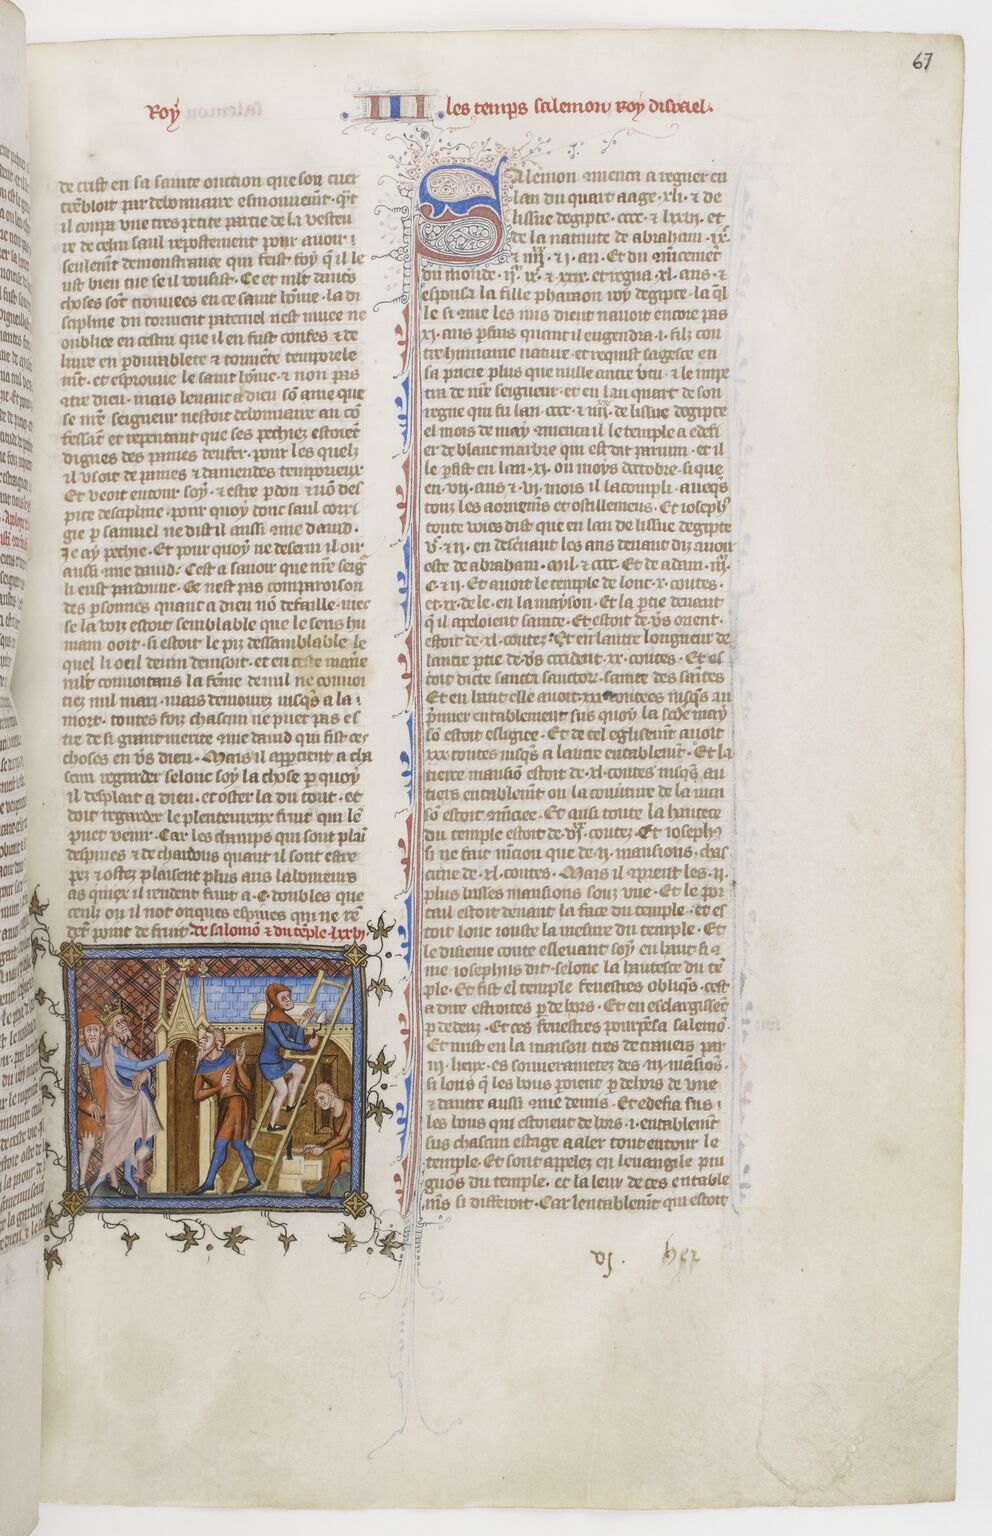 67
Roy
III les temps salemon roy disrael.
de cuist en sa sainte onction que son cuer
trembloit par debonnaire esmouvemt. qnt
il coupa une tres petite partie de la vesteu
re de celui saul repostement pour avoir
seulemt demonstrance qui feist foy q il le
ust bien tue se il vousist. Ce et mlt dautres
choses sot trouvees en ce saint home. la di
scipline du torment paternel nest mue ne
oubliee en cestui que il en fust confes et de
livre en pdurablete et tormete temporele
mt. et esprouve le saint home. et non pas
dieu. mais levant a dieu so ame que
se nre seigneur nestoit debonnaire au co
fessat et repentant que ses pechiez estoiet
dignes des paines denfer. pour les quelz
il usoit de paines et damendes temporeux
Et veoit entour soy. et estre pdon et no des
pite descipline. pour quoy donc saul corri
gie p samuel ne dist il aussi ame david.
Je ay pechie. Et pour quoy ne deservi il oir
aussi ame david. Cest a savoir que nre seig
li eust pardonne. Ce nest pas comparoison
des psonnes quant a dieu no defaille. mes
se la voiz estoit semblable que le sens hu
main ooit. si estoit le piz dessamblable le
quel li oeil devin devisoit. et en ceste maire
mlt convoitans la feme de mil ne convoi
tiez mil mari. mais demourez jusqs a la
mort. toutes foiz chascun ne puet pas es
tre de si grant merite ame david qui fist ces
choses en vs dieu. Mais il appertient a cha
scun regarder selonc soy la chose p quoy
il desplait a dieu. et oster la du tout. et
doit regarder le plentureux fruit qui le
puet venir. Car les champs qui sont plai
despines et de chardons quant il sont estre
pez et ostez plaisent plus aus laboureurs
as quiex il rendent fruit a .C. doubles que
ceulz ou il not onques espines qui ne re
det point de fruit. De salomo et du teple. lxxvi.
Salemon amenca a regner en
lan du quart aage .xli. et de
lissue degipte .cccc. et lxxvi. et
de la nativite de abraham .ix.
et iiij. et j. an. Et du amcemet
du monde .ij. ix. et xxix. et regna .xl. ans. et
espousa la fille pharaon roy degipte. la ql
le si ame les uns dient navoit encore pas
xi. ans pfais quant il engendra .i. filz con
tre humaine nature. et requist sagesce en
sa priere plus que nulle autre vtu. et le impe
tra de nre seigneur. et en lan quart de son
regne qui fu lan .cccc. et iiij. de lissue degipte
el mois de may amenca il le temple a edefi
er de blanc marbre qui est dit parium. et il
le pfist en lan .xi. ou moys doctobre. si que
en .vii. ans et .vi. mois il lacompli. aveqs
touz les aornems et ostillemens. Et ioseph
toute voies dist que en lan de lissue degipte
v. et ij. en descenant les ans devant diz avoir
este de abraham .mil. et cccc. Et de adam .iij.
c. et ij. Et avoit le temple de lonc .x. coutes.
et .xx. de le. en la mayson. Et la ptie devant
q il apeloient sainte. Et estoit de vs orient.
estoit de .xl. coutez. Et en lautre longueur de
lautre ptie de vs occident .xx. coutes. Et es
toit dicte sancta sanctor. sainte des saintes
Et en haut elle avoit .xxx. coutees jusqs au
pmier entablement sus quoy la scde may
so estoit esligiee. Et de cel egliseemt avoit
xxx coutes jusqs a lautre entablemt. Et la
tierce mansio estoit de .xl. coutes jusqs au
tiers entablemt ou la couvture de la mai
so estoit amciee. Et ainsi toute la hautece
du temple estoit de coutez. Et iosephus
si ne fait mcion que de .ij. mansions. chas
cune de .xl. coutes. Mais il aprent les .ij.
plus basses mansions souz une. Et le por
tail estoit devant la face du temple. et es
toit lonc iouste la mesure du temple. Et
le disieme coute eslevant soy en haut si a
me iosephus dit. selonc la hautesce du te
ple. Et fist el temple fenestres obliqs. cest
a dire estroites p dehors. Et en esclargisset
p dedenz. Et ces fenestres pourpsa salemo.
Et mist en la maison tres de travers par
iij. lieux. es souverainetez des .iij. masios.
si lons q les bous paroient p dehors de une
et dautre aussi ame denns. Et edefia sus
les bous qui estoient de hors .i. entablemt
sus chascun estage a aler tout entour le
temple. Et sont appelez en levangile pin
guos du temple. et la leur de ces entable
ms si differoit. Car lentablemt qui estoit